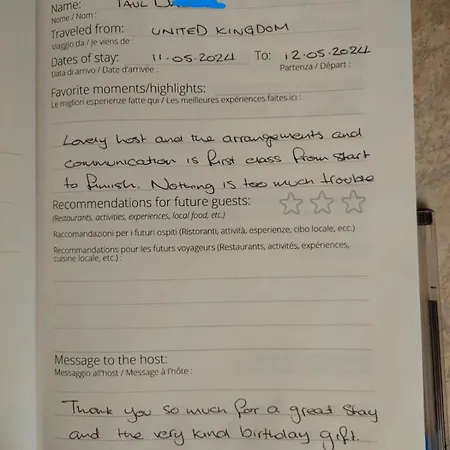 Name:
Nome / Nom :
Traveled from: UNITED KINGDOM
Viaggio da / Je viens de :
Dates of stay: 11.05.2024 To: 12.05.2024
Data di arrivo / Date d'arrivée : Partenza / Départ :
Favorite moments/highlights:
Le migliori esperienze fatte qui / Les meilleures expériences faites ici :
Lovely host and the arrangements and
communication is first class from start
to finish. Nothing is too much trouble
Recommendations for future guests:
(Restaurants, activities, experiences, local food, etc.)
Raccomandazioni per i futuri ospiti (Ristoranti, attività, esperienze, cibo locale, ecc.)
Recommandations pour les futurs voyageurs (Restaurants, activités, expériences,
cuisine locale, etc.) :
Message to the host:
Messaggio all'host / Message à l'hôte :
Thank you so much for a great stay
and the very kind birthday gift.